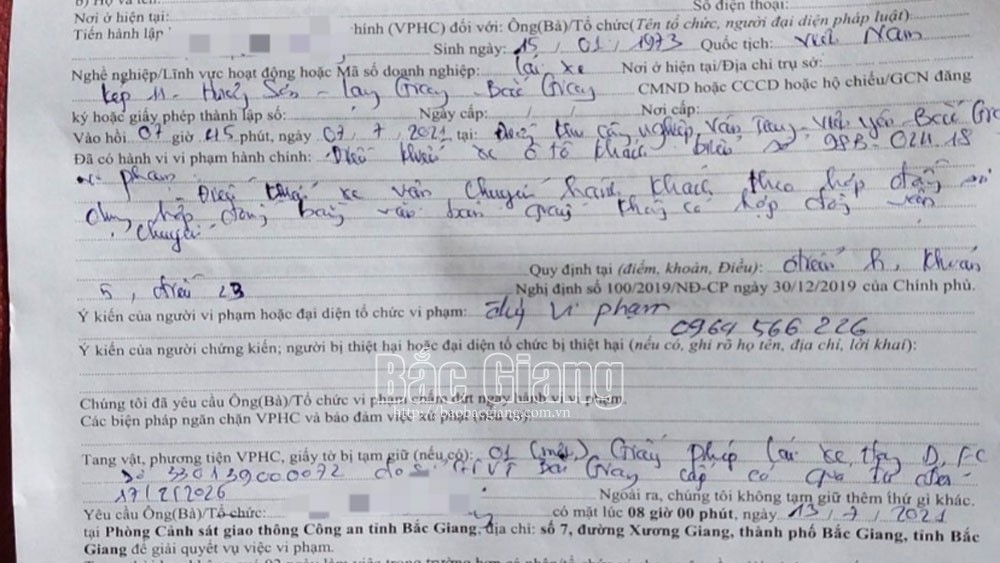 b) Họ và tên: Số điện thoại:
Nơi ở hiện tại:
Tiến hành lập hính (VPHC) đối với: Ông(Bà)/Tổ chức(Tên tổ chức, người đại diện pháp luật):
Sinh ngày: 15 / 01 / 1973 Quốc tịch: Việt Nam
Nghề nghiệp/Lĩnh vực hoạt động hoặc Mã số doanh nghiệp: Lái xe Nơi ở hiện tại/Địa chỉ trụ sở:
Kép 11 - Hương Sơn - Lạng Giang - Bắc Giang CMND hoặc CCCD hoặc hộ chiếu/GCN đăng
ký hoặc giấy phép thành lập số: Ngày cấp: / / Nơi cấp:
Vào hồi 07 giờ 45 phút, ngày 07 / 7 / 2021 tại: Đường khu công nghiệp Vân Trung - Việt Yên - Bắc Gia
Đã có hành vi vi phạm hành chính: Điều khiển xe ô tô khách biển số 98B-024.18
vi phạm
Điều khiển xe vận chuyển hành khách theo hợp đồng
dụng hợp đồng bằng văn bản giấy không có hợp đồng vận
chuyển
Quy định tại (điểm, khoản, Điều): điểm h, khoản
5, điều 23 Nghị định số 100/2019/NĐ-CP ngày 30/12/2019 của Chính phủ.
Ý kiến của người vi phạm hoặc đại diện tổ chức vi phạm: vi phạm
0964 566 226
Ý kiến của người chứng kiến; người bị thiệt hại hoặc đại diện tổ chức bị thiệt hại (nếu có, ghi rõ họ tên, địa chỉ, lời khai):
Bắc Giang
Chúng tôi đã yêu cầu Ông(Bà)/Tổ chức vi phạm chấm dứt ngay hành vi vi phạm.
http://baobacgiang.com.vn
Các biện pháp ngăn chặn VPHC và bảo đảm việc xử phạt (nếu có):
Tang vật, phương tiện VPHC, giấy tờ bị tạm giữ (nếu có): 01 (một) Giấy phép lái xe hạng D, FC
Số 330139000072 do sở GTVT Bắc Giang cấp có giá trị đến
17/2/2026 Ngoài ra, chúng tôi không tạm giữ thêm thứ gì khác.
Yêu cầu Ông(Bà)/Tổ chức: có mặt lúc 08 giờ 00 phút, ngày 13 / 7 / 2021
tại Phòng Cảnh sát giao thông Công an tỉnh Bắc Giang, địa chỉ: số 7, đường Xương Giang, thành phố Bắc Giang, tỉnh Bắc
Giang để giải quyết vụ việc vi phạm.